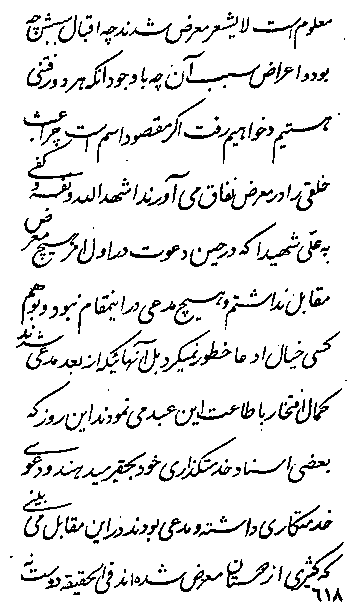 معلوم است لایشعر معرض شدند چه اقبال سببش چه
بود و اعراض سبب آن چه با وجود آنکه هر دو رفتنی
هستیم و خواهیم رفت اگر مقصود اسم است چرا عبث
خلقی را در معرض نفاق می آورند اشهد الله و نفسه و کفی
به علی شهیدا که در حین دعوت در اول امر هیچ معرض
مقابل نداشتم و هیچ مدعی در اینمقام نبود و بوهم
کسی خیال ادعا خطور نمیکرد بل آنهائیکه از بعد مدعی شدند
کمال افتخار باطاعت این عبد می نمودند این روز که
بعضی اسناد خدمتگذاری خود بحقیر میدهند و دعوی
خدمتکاری داشته و مدعی بودند در این مقابل می بینی
که کثیری از محبتان معرض شده اند فی الحقیقه دوست نه
۶۱۸